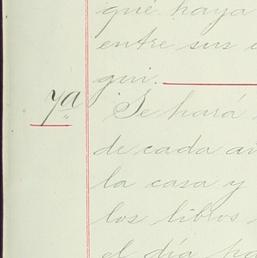 que haya
entre sus
gui.
7a Se hará
de cada añ
la casa y
los libros
el día